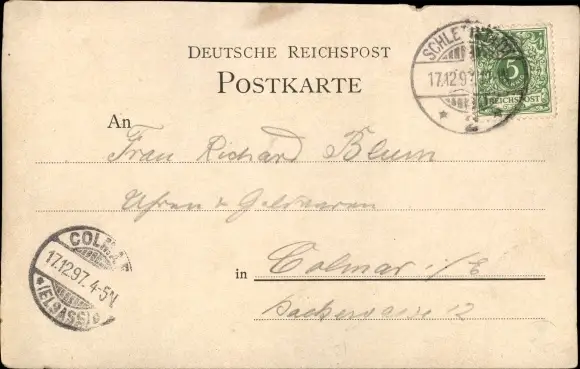 DEUTSCHE REICHSPOST
POSTKARTE
SCHLETTSTADT
17.12.97
5
REICHSPOST
An
Frau Richard Blum
Uhren & Goldwaren
in Colmar i/E
COLMAR
17.12.97. 4-5N.
(ELSASS)
12